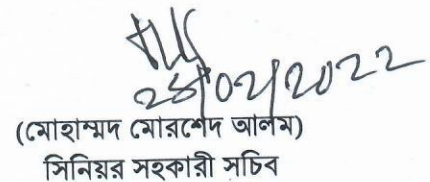 /02/2022
(মোহাম্মদ মোরশেদ আলম)
সিনিয়র সহকারী সচিব